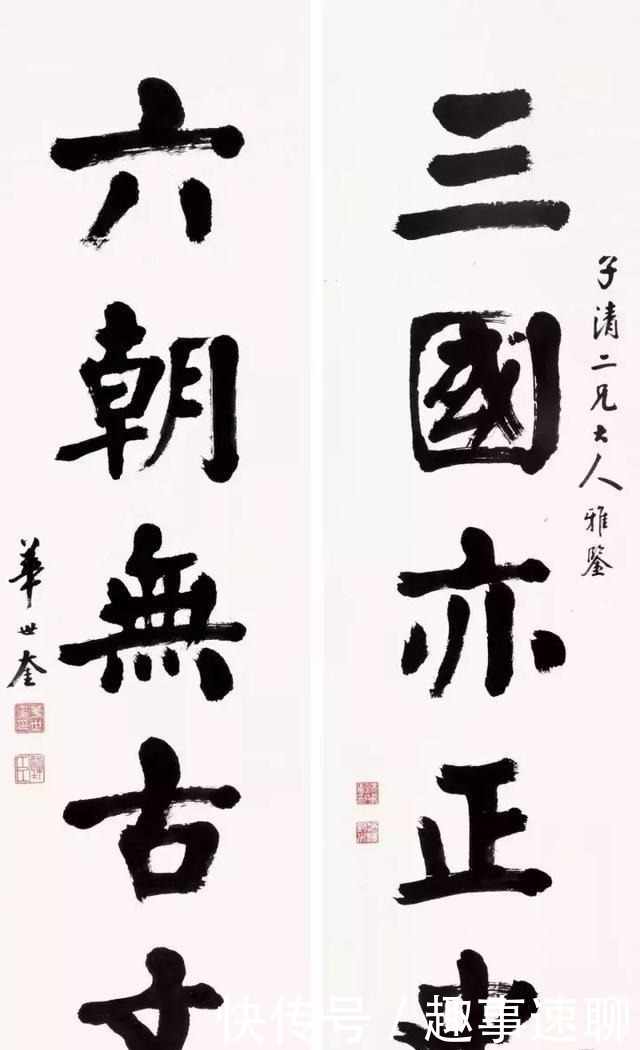 三國亦正
子清二兄大人雅鑒
六朝無古
華世奎
快传号/趣事速聊